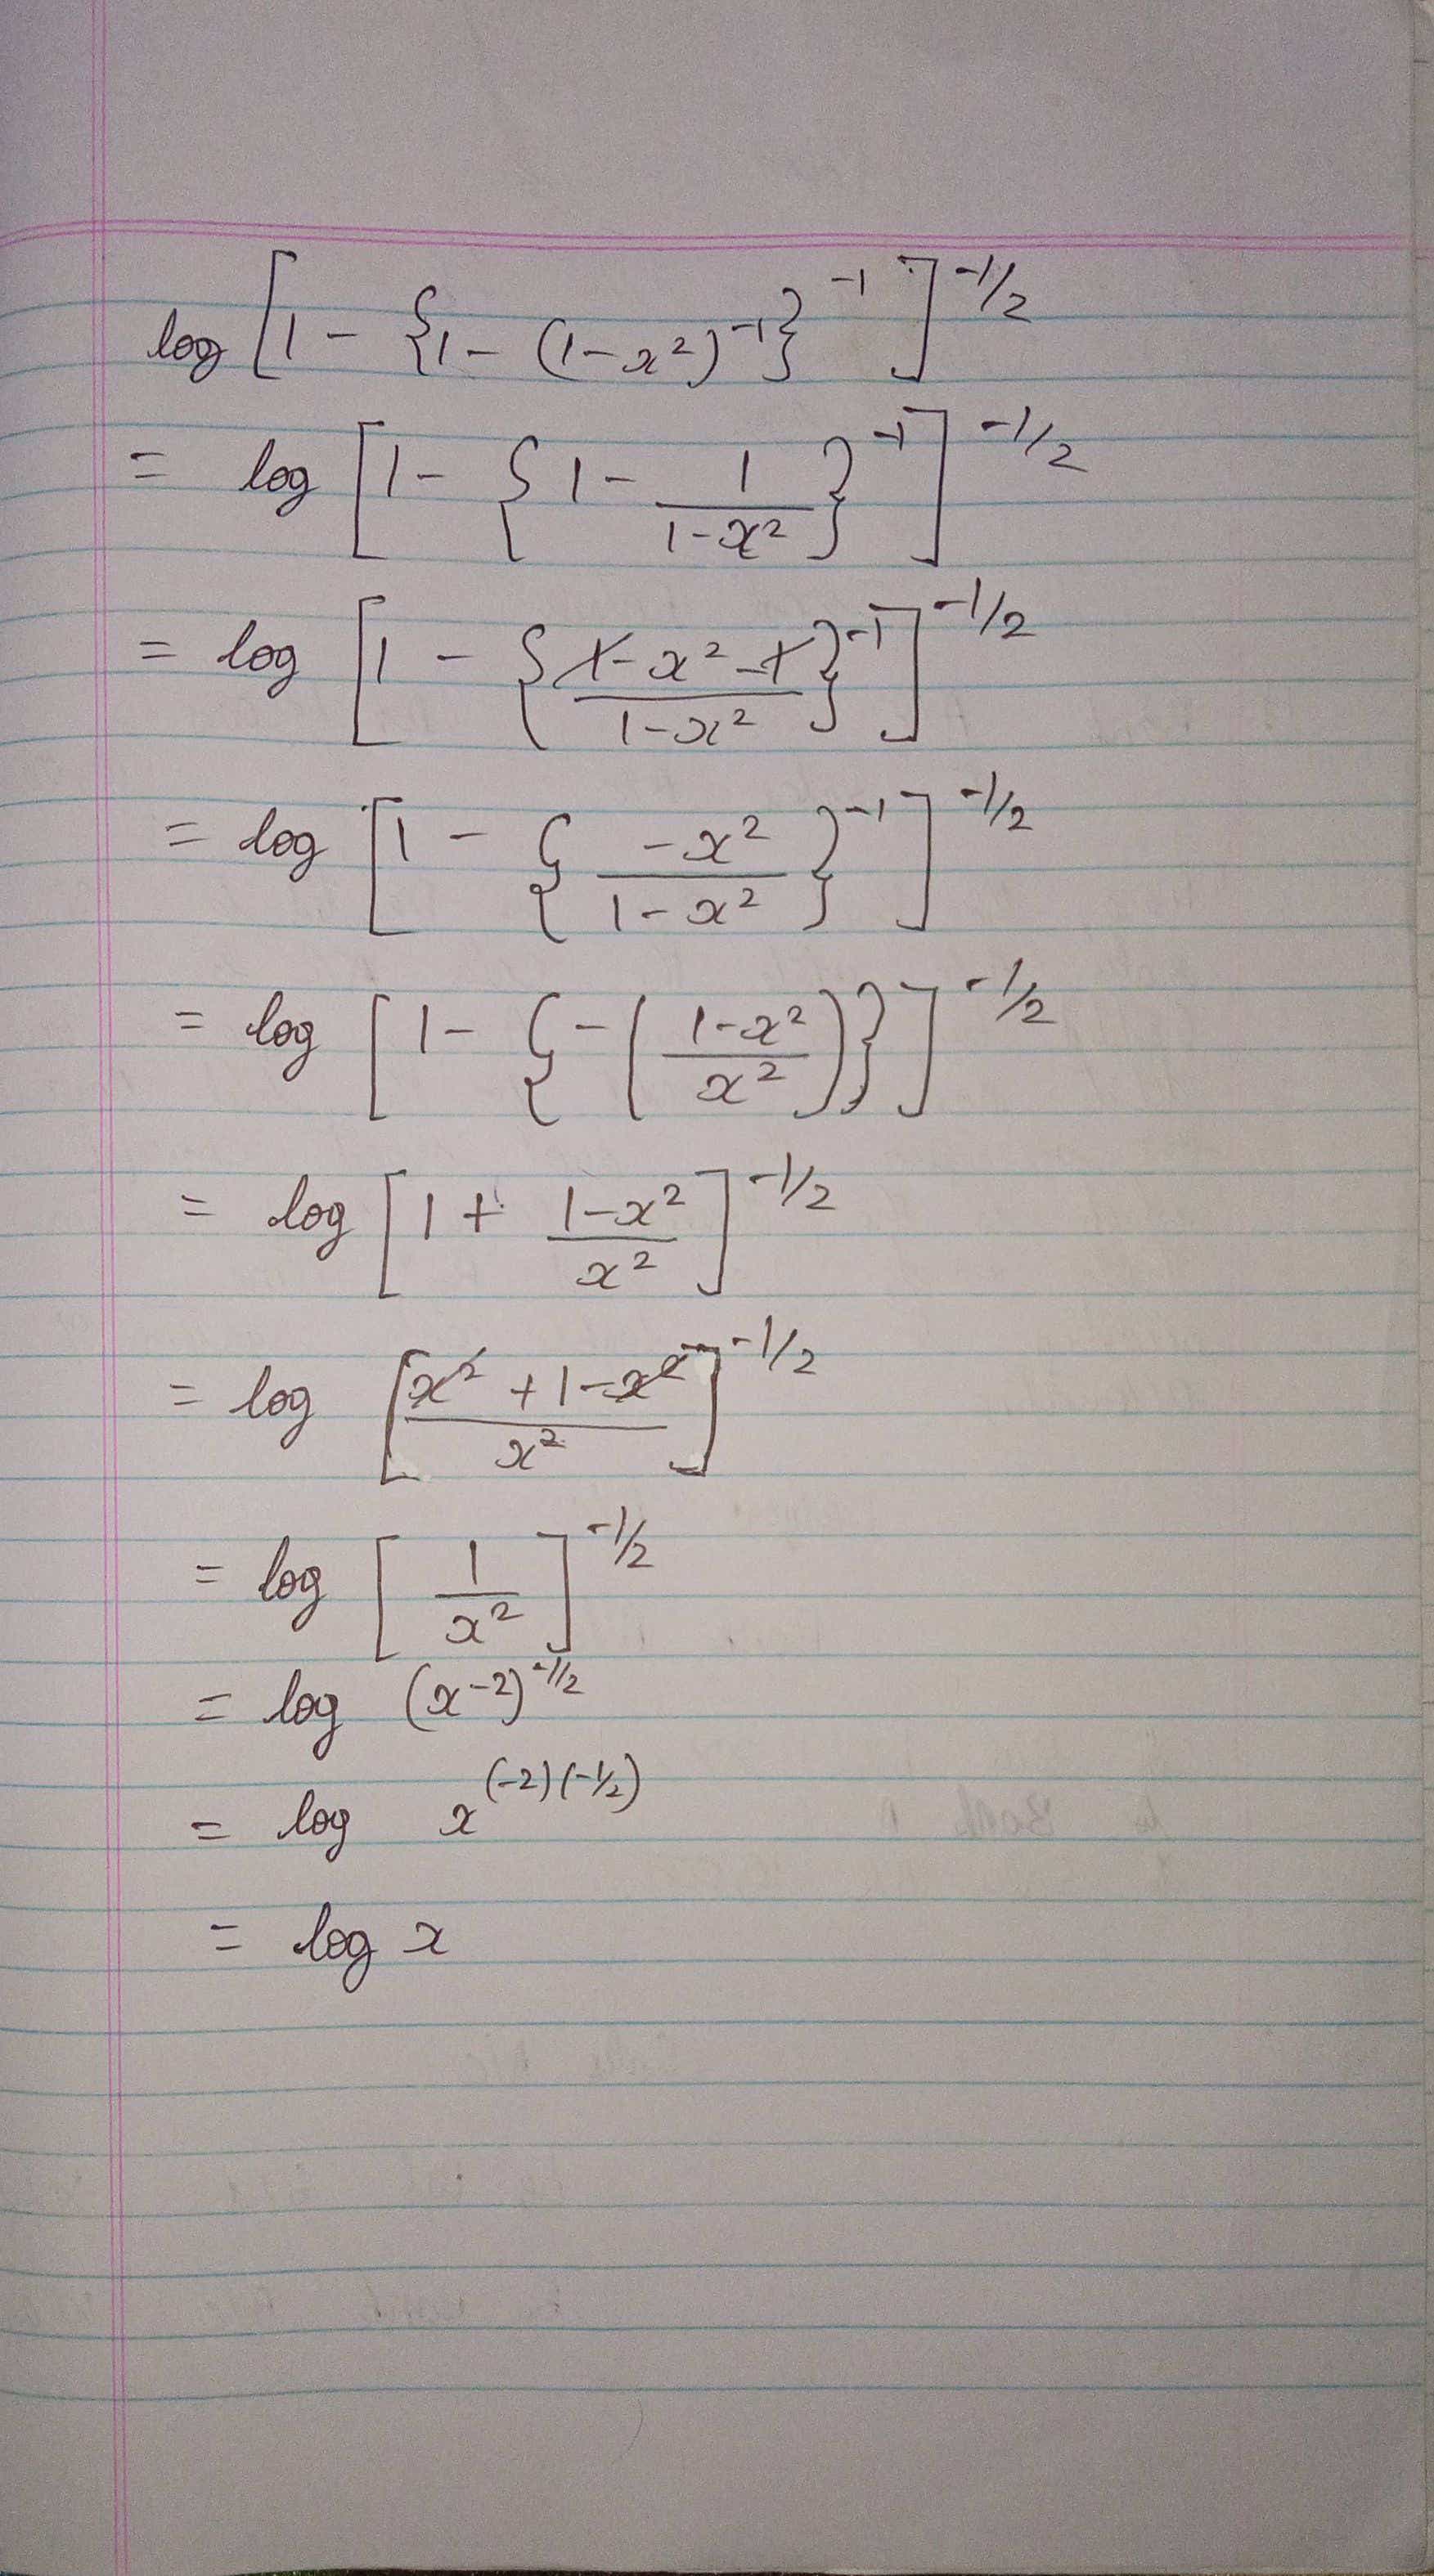 log [1 - {1 - (1-x²)⁻¹}⁻¹]^(-1/2)
= log [1 - {1 - 1/(1-x²)}⁻¹]^(-1/2)
= log [1 - {(1-x²-1)/(1-x²)}⁻¹]^(-1/2)
= log [1 - {-x²/(1-x²)}⁻¹]^(-1/2)
= log [1 - {-((1-x²)/x²)}]^(-1/2)
= log [1 + (1-x²)/x²]^(-1/2)
= log [(x²+1-x²)/x²]^(-1/2)
= log [1/x²]^(-1/2)
= log (x-2)^(-1/2)
= log x^((-2)(-1/2))
= log x